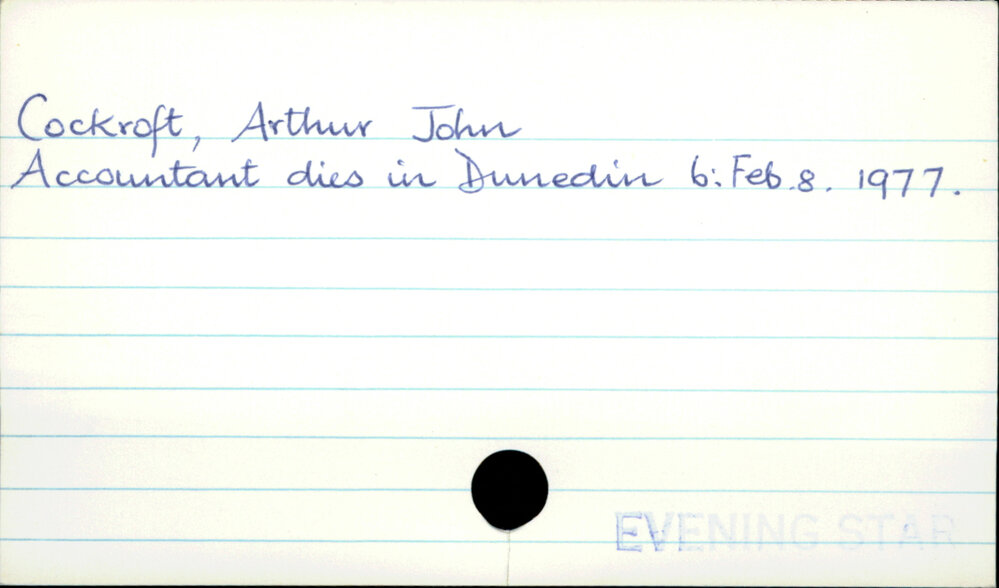 Cockroft, Arthur John
Accountant dies in Dunedin 6: Feb.8. 1977.
EVENING STAR